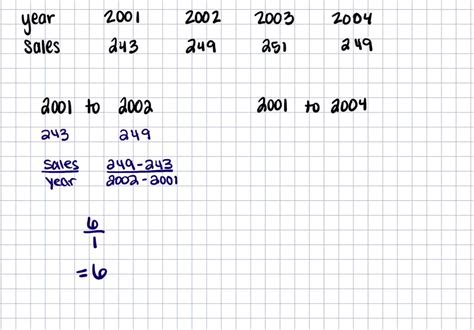 year 2001 2002 2003 2004
Sales 243 249 251 249
2001 to 2002 2001 to 2004
243 249
sales 249-243
year 2002-2001
6
1
=6